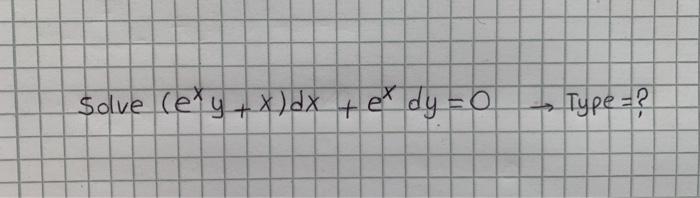 Solve (eˣy + x)dx + eˣ dy = 0 → Type = ?